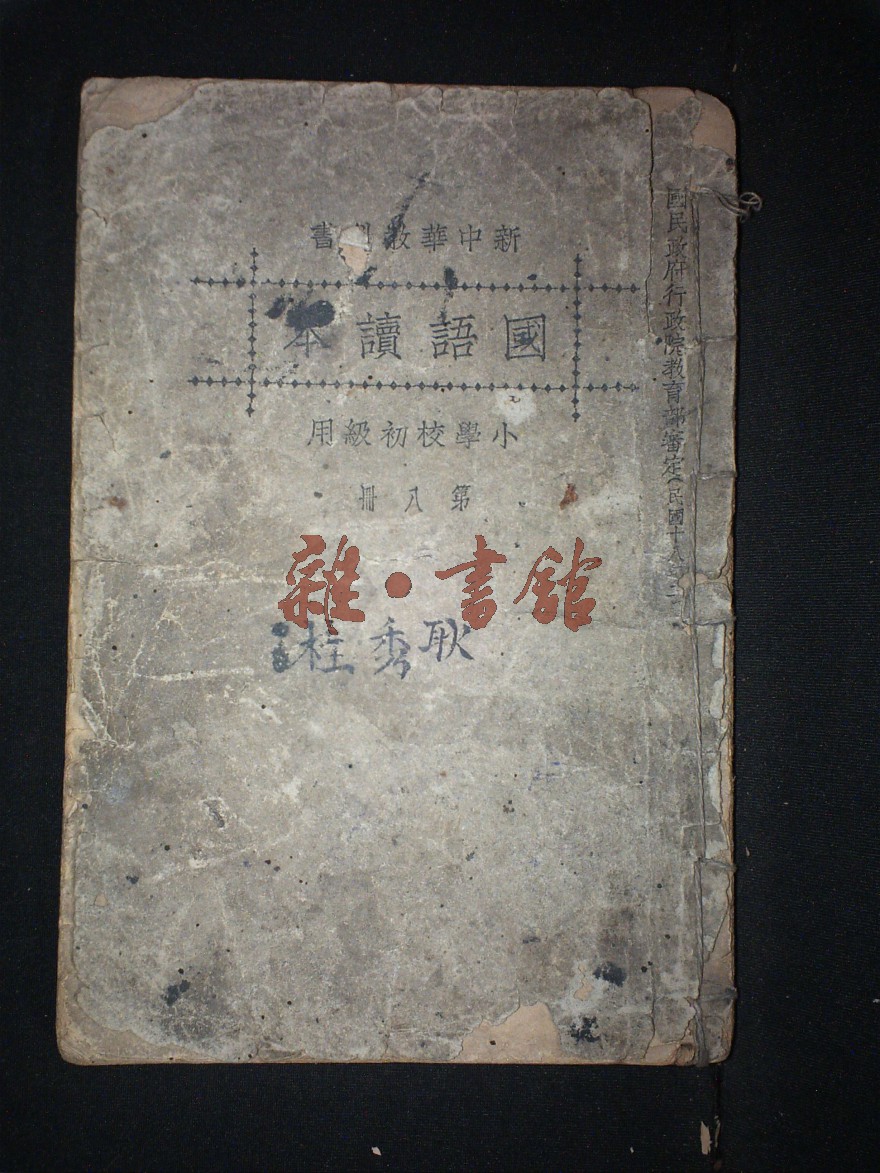 新中華教科書
國語讀本
小學校初級用
第八冊
雜·書館
耿秀柱
國民政府行政院教育部審定(民國十八年二月